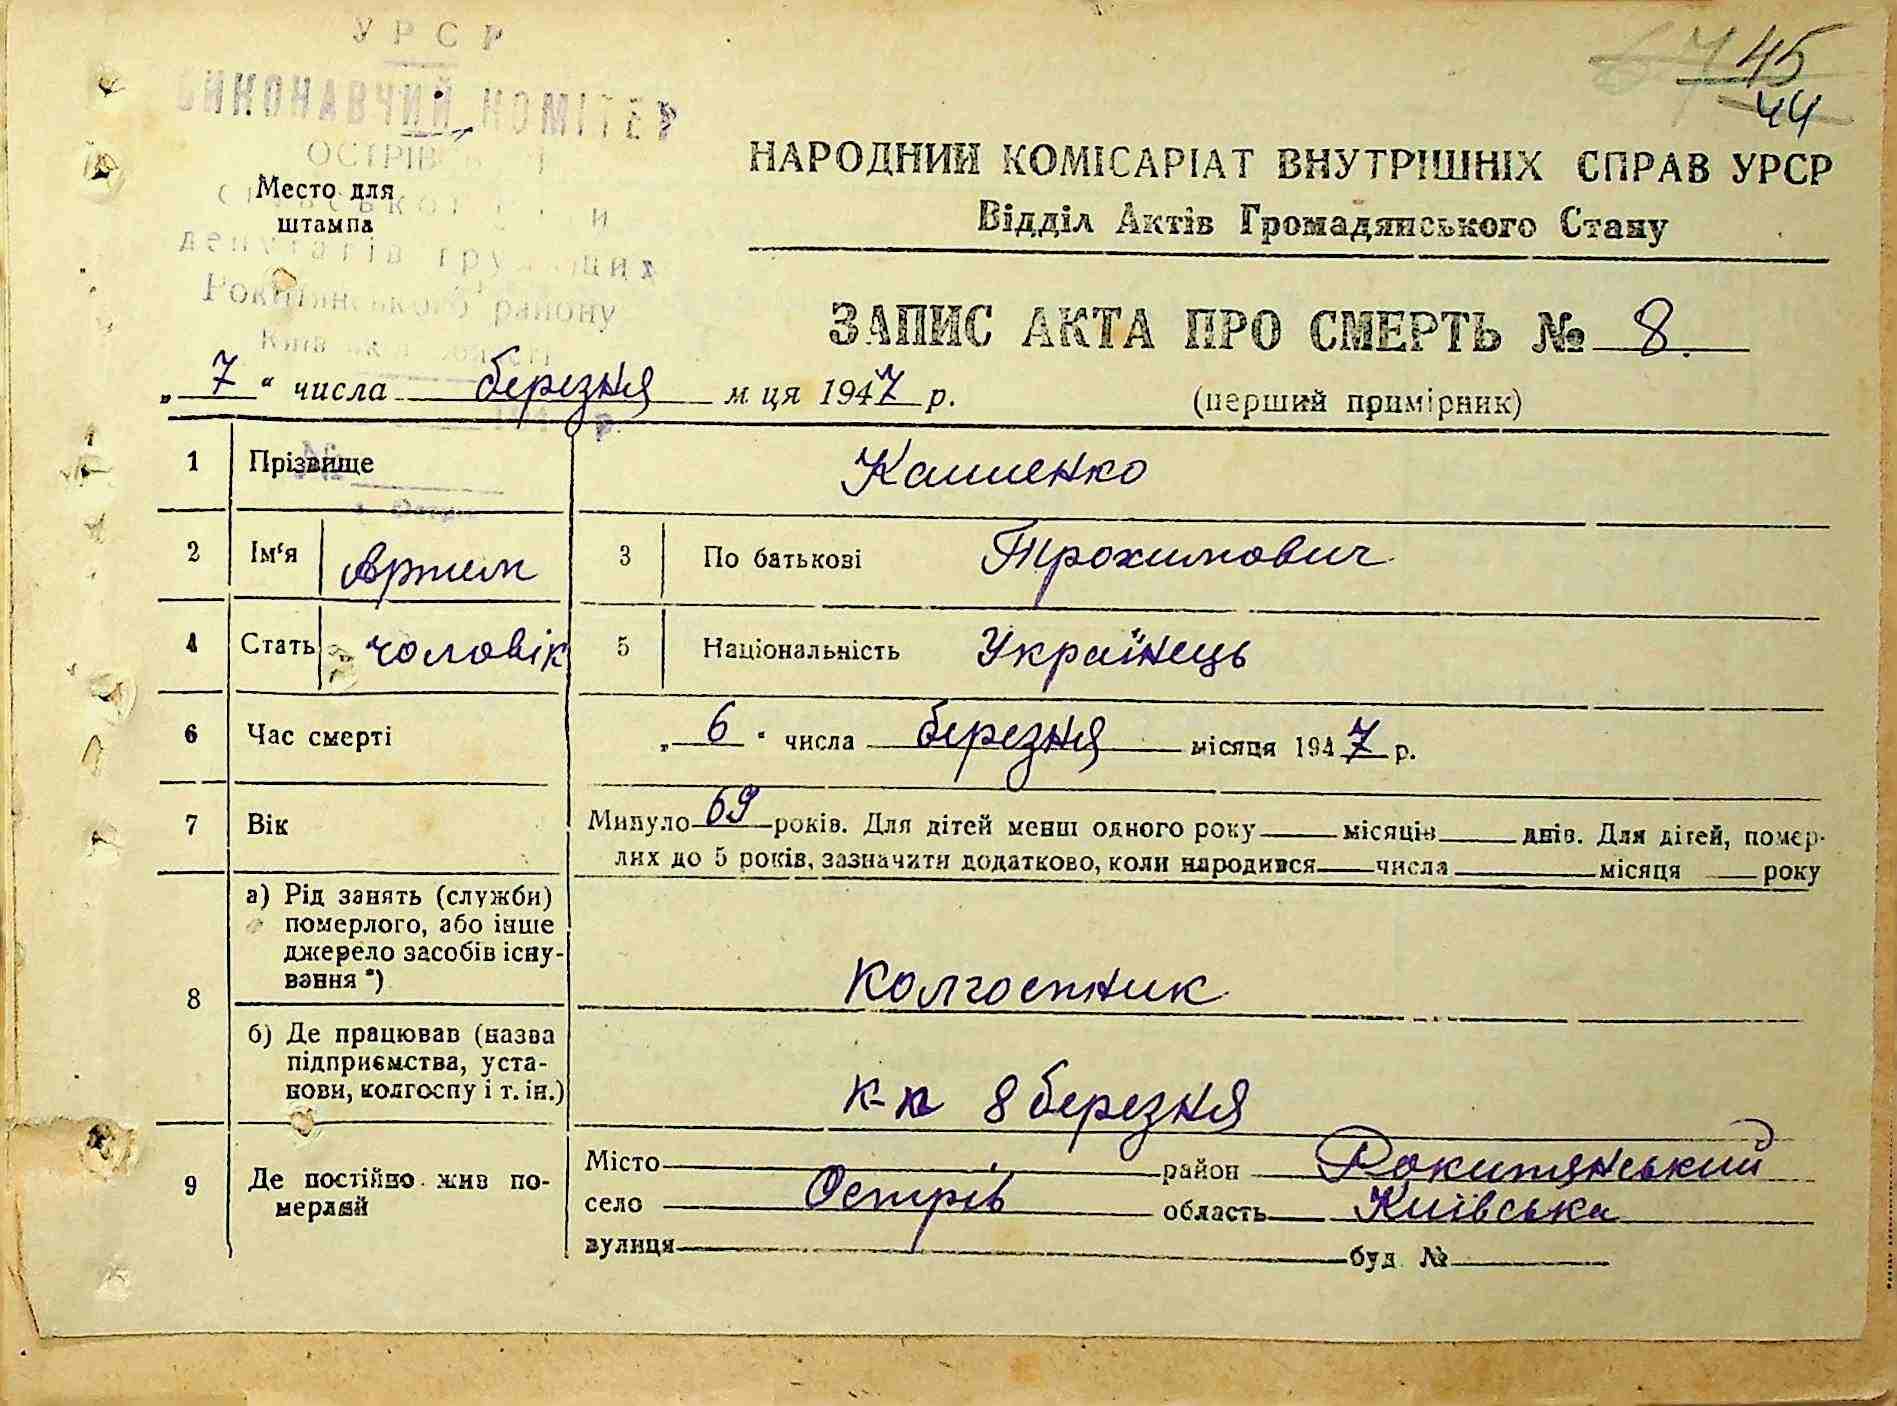 УРСР
ВИКОНАВЧИЙ КОМІТЕТ
67 45
44
НАРОДНИЙ КОМІСАРІАТ ВНУТРІШНІХ СПРАВ УРСР
Відділ Актів Громадянського Стану
Место для
штампа
депутатів трудящих
Рокитнянського району
ЗАПИС АКТА ПРО СМЕРТЬ № 8.
„ 7 “ числа березня м ця 1947 р.
(перший примірник)
1 Прізвище Кашиенко
2 Ім‘я Артем 3 По батькові Трохимович
4 Стать чоловік 5 Національність Українець
6 Час смерті „ 6 “ числа березня місяця 1947 р.
7 Вік Минуло 69 років. Для дітей менш одного року місяців днів. Для дітей, помер-
лих до 5 років, зазначити додатково, коли народився числа місяця року
8 а) Рід занять (служби)
померлого, або інше
джерело засобів існу-
вання *)
Колгоспник
б) Де працював (назва
підприємства, уста-
нови, колгоспу і т. ін.)
к-п 8 березня
9 Де постійно жив по-
мерлий
Місто район Рокитянський
село Острів область Київська
вулиця буд. №